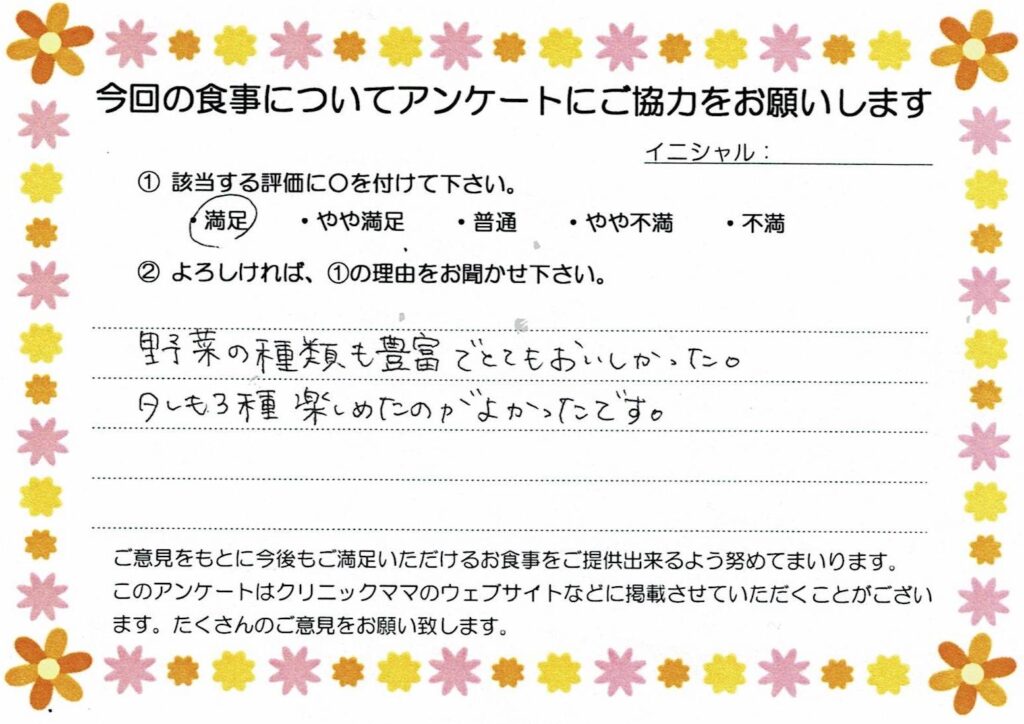 今回の食事についてアンケートにご協力をお願いします
イニシャル：
① 該当する評価に〇を付けて下さい。
・満足 ・やや満足 ・普通 ・やや不満 ・不満
② よろしければ、①の理由をお聞かせ下さい。
野菜の種類も豊富でとてもおいしかった。
タレも3種楽しめたのがよかったです。
ご意見をもとに今後もご満足いただけるお食事をご提供出来るよう努めてまいります。
このアンケートはクリニックママのウェブサイトなどに掲載させていただくことがござい
ます。たくさんのご意見をお願い致します。